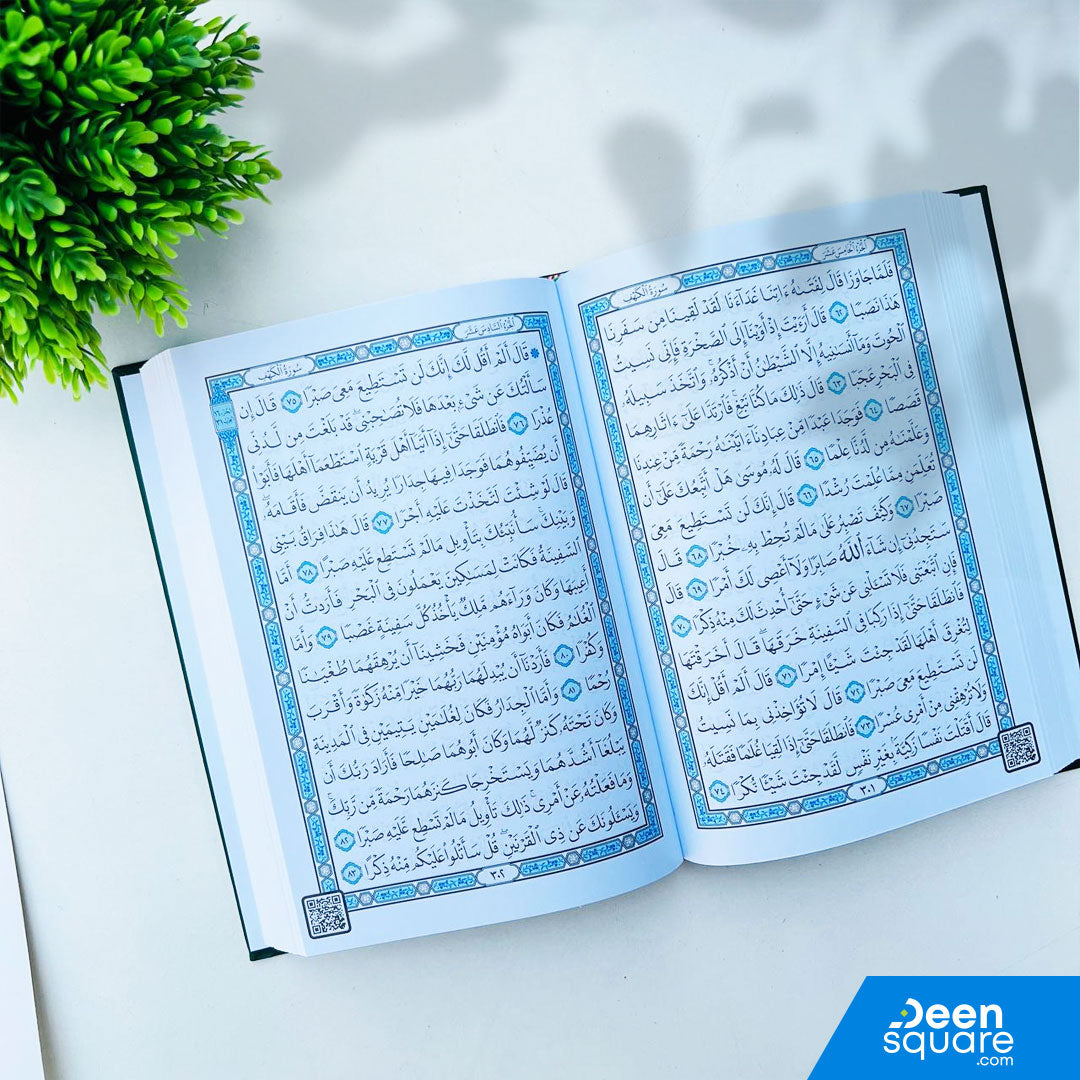 الجزء الخامس عشر
سورة الكهف
فَلَمَّا جَاوَزَا قَالَ لِفَتَىٰهُ ءَاتِنَا غَدَآءَنَا لَقَدْ لَقِينَا مِن سَفَرِنَا
هَٰذَا نَصَبًا ٦٢ قَالَ أَرَءَيْتَ إِذْ أَوَيْنَآ إِلَى ٱلصَّخْرَةِ فَإِنِّى نَسِيتُ
ٱلْحُوتَ وَمَآ أَنسَىٰنِيهُ إِلَّا ٱلشَّيْطَٰنُ أَنْ أَذْكُرَهُۥ وَٱتَّخَذَ سَبِيلَهُۥ
فِى ٱلْبَحْرِ عَجَبًا ٦٣ قَالَ ذَٰلِكَ مَا كُنَّا نَبْغِ فَٱرْتَدَّا عَلَىٰٓ ءَاثَارِهِمَا
قَصَصًا ٦٤ فَوَجَدَا عَبْدًا مِّنْ عِبَادِنَآ ءَاتَيْنَٰهُ رَحْمَةً مِّنْ عِندِنَا
وَعَلَّمْنَٰهُ مِن لَّدُنَّا عِلْمًا ٦٥ قَالَ لَهُۥ مُوسَىٰ هَلْ أَتَّبِعُكَ عَلَىٰٓ أَن
تُعَلِّمَنِ مِمَّا عُلِّمْتَ رُشْدًا ٦٦ قَالَ إِنَّكَ لَن تَسْتَطِيعَ مَعِىَ
صَبْرًا ٦٧ وَكَيْفَ تَصْبِرُ عَلَىٰ مَا لَمْ تُحِطْ بِهِۦ خُبْرًا ٦٨ قَالَ
سَتَجِدُنِىٓ إِن شَآءَ ٱللَّهُ صَابِرًا وَلَآ أَعْصِى لَكَ أَمْرًا ٦٩ قَالَ
فَإِنِ ٱتَّبَعْتَنِى فَلَا تَسْـَٔلْنِى عَن شَىْءٍ حَتَّىٰٓ أُحْدِثَ لَكَ مِنْهُ ذِكْرًا ٧٠
فَٱنطَلَقَا حَتَّىٰٓ إِذَا رَكِبَا فِى ٱلسَّفِينَةِ خَرَقَهَا قَالَ أَخَرَقْتَهَا
لِتُغْرِقَ أَهْلَهَا لَقَدْ جِئْتَ شَيْـًٔا إِمْرًا ٧١ قَالَ أَلَمْ أَقُلْ إِنَّكَ
لَن تَسْتَطِيعَ مَعِىَ صَبْرًا ٧٢ قَالَ لَا تُؤَاخِذْنِى بِمَا نَسِيتُ
وَلَا تُرْهِقْنِى مِنْ أَمْرِى عُسْرًا ٧٣ فَٱنطَلَقَا حَتَّىٰٓ إِذَا لَقِيَا غُلَٰمًا فَقَتَلَهُۥ
قَالَ أَقَتَلْتَ نَفْسًا زَكِيَّةًۢ بِغَيْرِ نَفْسٍ لَّقَدْ جِئْتَ شَيْـًٔا نُّكْرًا ٧٤
٣٠١
الجزء السادس عشر
سورة الكهف
۞ قَالَ أَلَمْ أَقُل لَّكَ إِنَّكَ لَن تَسْتَطِيعَ مَعِىَ صَبْرًا ٧٥ قَالَ إِن
سَأَلْتُكَ عَن شَىْءٍۭ بَعْدَهَا فَلَا تُصَٰحِبْنِى قَدْ بَلَغْتَ مِن لَّدُنِّى
عُذْرًا ٧٦ فَٱنطَلَقَا حَتَّىٰٓ إِذَآ أَتَيَآ أَهْلَ قَرْيَةٍ ٱسْتَطْعَمَآ أَهْلَهَا فَأَبَوْا۟
أَن يُضَيِّفُوهُمَا فَوَجَدَا فِيهَا جِدَارًا يُرِيدُ أَن يَنقَضَّ فَأَقَامَهُۥ
قَالَ لَوْ شِئْتَ لَتَّخَذْتَ عَلَيْهِ أَجْرًا ٧٧ قَالَ هَٰذَا فِرَاقُ بَيْنِى
وَبَيْنِكَ سَأُنَبِّئُكَ بِتَأْوِيلِ مَا لَمْ تَسْتَطِع عَّلَيْهِ صَبْرًا ٧٨ أَمَّا
ٱلسَّفِينَةُ فَكَانَتْ لِمَسَٰكِينَ يَعْمَلُونَ فِى ٱلْبَحْرِ فَأَرَدتُّ أَنْ
أَعِيبَهَا وَكَانَ وَرَآءَهُم مَّلِكٌ يَأْخُذُ كُلَّ سَفِينَةٍ غَصْبًا ٧٩ وَأَمَّا
ٱلْغُلَٰمُ فَكَانَ أَبَوَاهُ مُؤْمِنَيْنِ فَخَشِينَآ أَن يُرْهِقَهُمَا طُغْيَٰنًا
وَكُفْرًا ٨٠ فَأَرَدْنَآ أَن يُبْدِلَهُمَا رَبُّهُمَا خَيْرًا مِّنْهُ زَكَوٰةً وَأَقْرَبَ
رُحْمًا ٨١ وَأَمَّا ٱلْجِدَارُ فَكَانَ لِغُلَٰمَيْنِ يَتِيمَيْنِ فِى ٱلْمَدِينَةِ
وَكَانَ تَحْتَهُۥ كَنزٌ لَّهُمَا وَكَانَ أَبُوهُمَا صَٰلِحًا فَأَرَادَ رَبُّكَ أَن
يَبْلُغَآ أَشُدَّهُمَا وَيَسْتَخْرِجَا كَنزَهُمَا رَحْمَةً مِّن رَّبِّكَ
وَمَا فَعَلْتُهُۥ عَنْ أَمْرِى ذَٰلِكَ تَأْوِيلُ مَا لَمْ تَسْطِع عَّلَيْهِ صَبْرًا ٨٢
وَيَسْـَٔلُونَكَ عَن ذِى ٱلْقَرْنَيْنِ قُلْ سَأَتْلُوا۟ عَلَيْكُم مِّنْهُ ذِكْرًا ٨٣
٣٠٢
Deen
square
.com